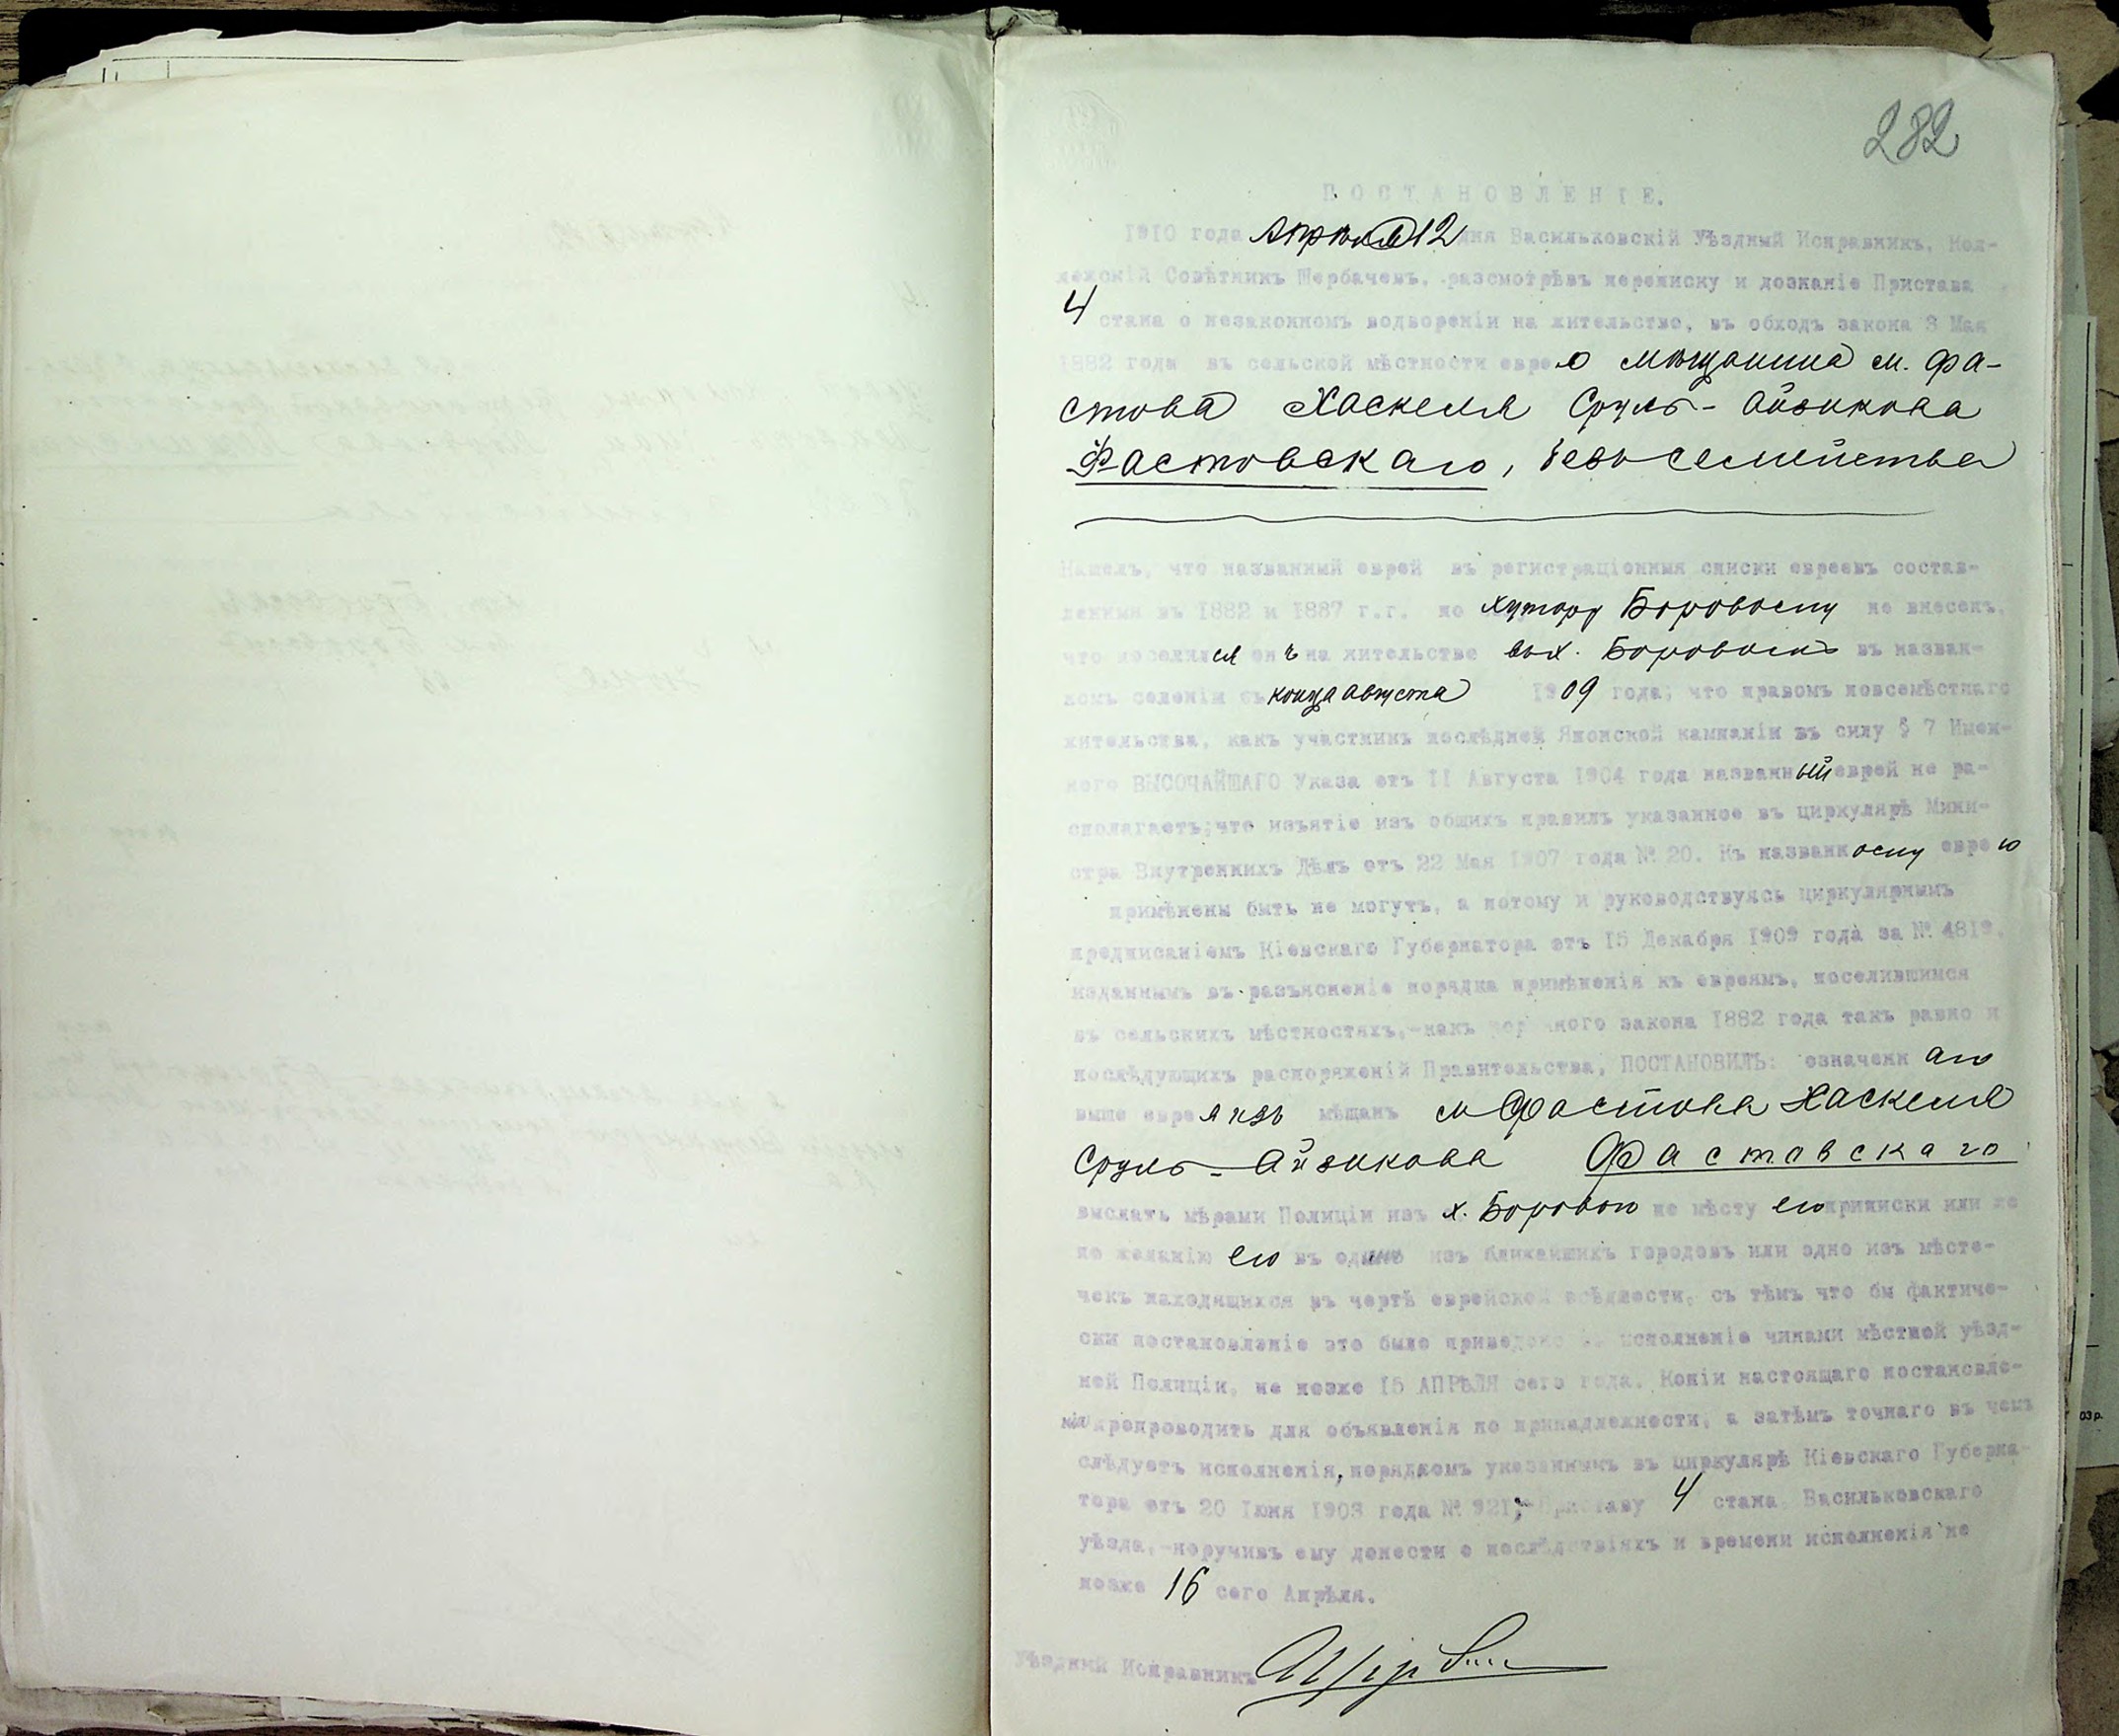 282
ПОСТАНОВЛЕНІЕ.
1910 года Апрѣля 12 дня Васильковскій Уѣздный Исправникъ, Кол-
лежскій Совѣтникъ Щербачевъ, разсмотрѣвъ переписку и дознаніе Пристава
4 стана о незаконномъ водвореніи на жительство, въ обходъ закона 3 Мая
1882 года въ сельской мѣстности еврея мѣщанина м. Фа-
стова Хаскеля Сруль-Айзикова
Фастовскаго, безъ семейства
Нашелъ, что названный еврей въ регистраціонныя списки евреевъ состав-
ленныя въ 1882 и 1887 г.г. по хутору Боровому не внесенъ,
что поселился онъ на жительство въ х. Боровомъ въ назван-
номъ селеніи съ конца августа 1909 года; что правомъ повсемѣстнаго
жительства, какъ участникъ послѣдней Японской кампаніи въ силу § 7 Имен-
ного ВЫСОЧАЙШАГО Указа отъ 11 Августа 1904 года названный еврей не ра-
сполагаетъ; что изъятіе изъ общихъ правилъ указанное въ циркулярѣ Мини-
стра Внутреннихъ Дѣлъ отъ 22 Мая 1907 года № 20. Къ названному еврею
примѣнены быть не могутъ, а потому и руководствуясь циркулярнымъ
предписаніемъ Кіевскаго Губернатора отъ 15 Декабря 1909 года за № 4819,
изданнымъ въ разъясненіе порядка примѣненія къ евреямъ, поселившимся
въ сельскихъ мѣстностяхъ,-какъ закона 1882 года такъ равно и
послѣдующихъ распоряженій Правительства, ПОСТАНОВИЛЪ: означеннаго
выше еврея изъ мѣщанъ м Фастова Хаскеля
Сруль-Айзикова Фастовскаго
выслать мѣрами Полиціи изъ х. Борового по мѣсту его приписки или же
по желанію его въ одинъ изъ ближайшихъ городовъ или одно изъ мѣсте-
чекъ находящихся въ чертѣ еврейской осѣдлости, съ тѣмъ что бы фактиче-
ски постановленіе это было приведено въ исполненіе чинами мѣстной уѣзд-
ной Полиціи, не позже 15 АПРѢЛЯ сего года. Копіи настоящаго постановле-
нія препроводить для объявленія по принадлежности, а затѣмъ точнаго въ чемъ
слѣдуетъ исполненія, порядкомъ указаннымъ въ циркулярѣ Кіевскаго Губерна-
тора отъ 20 Іюня 1903 года № 921;-Приставу 4 стана Васильковскаго
уѣзда,-поручивъ ему донести о послѣдствіяхъ и времени исполненія не
позже 16 сего Апрѣля.
Уѣздный Исправникъ